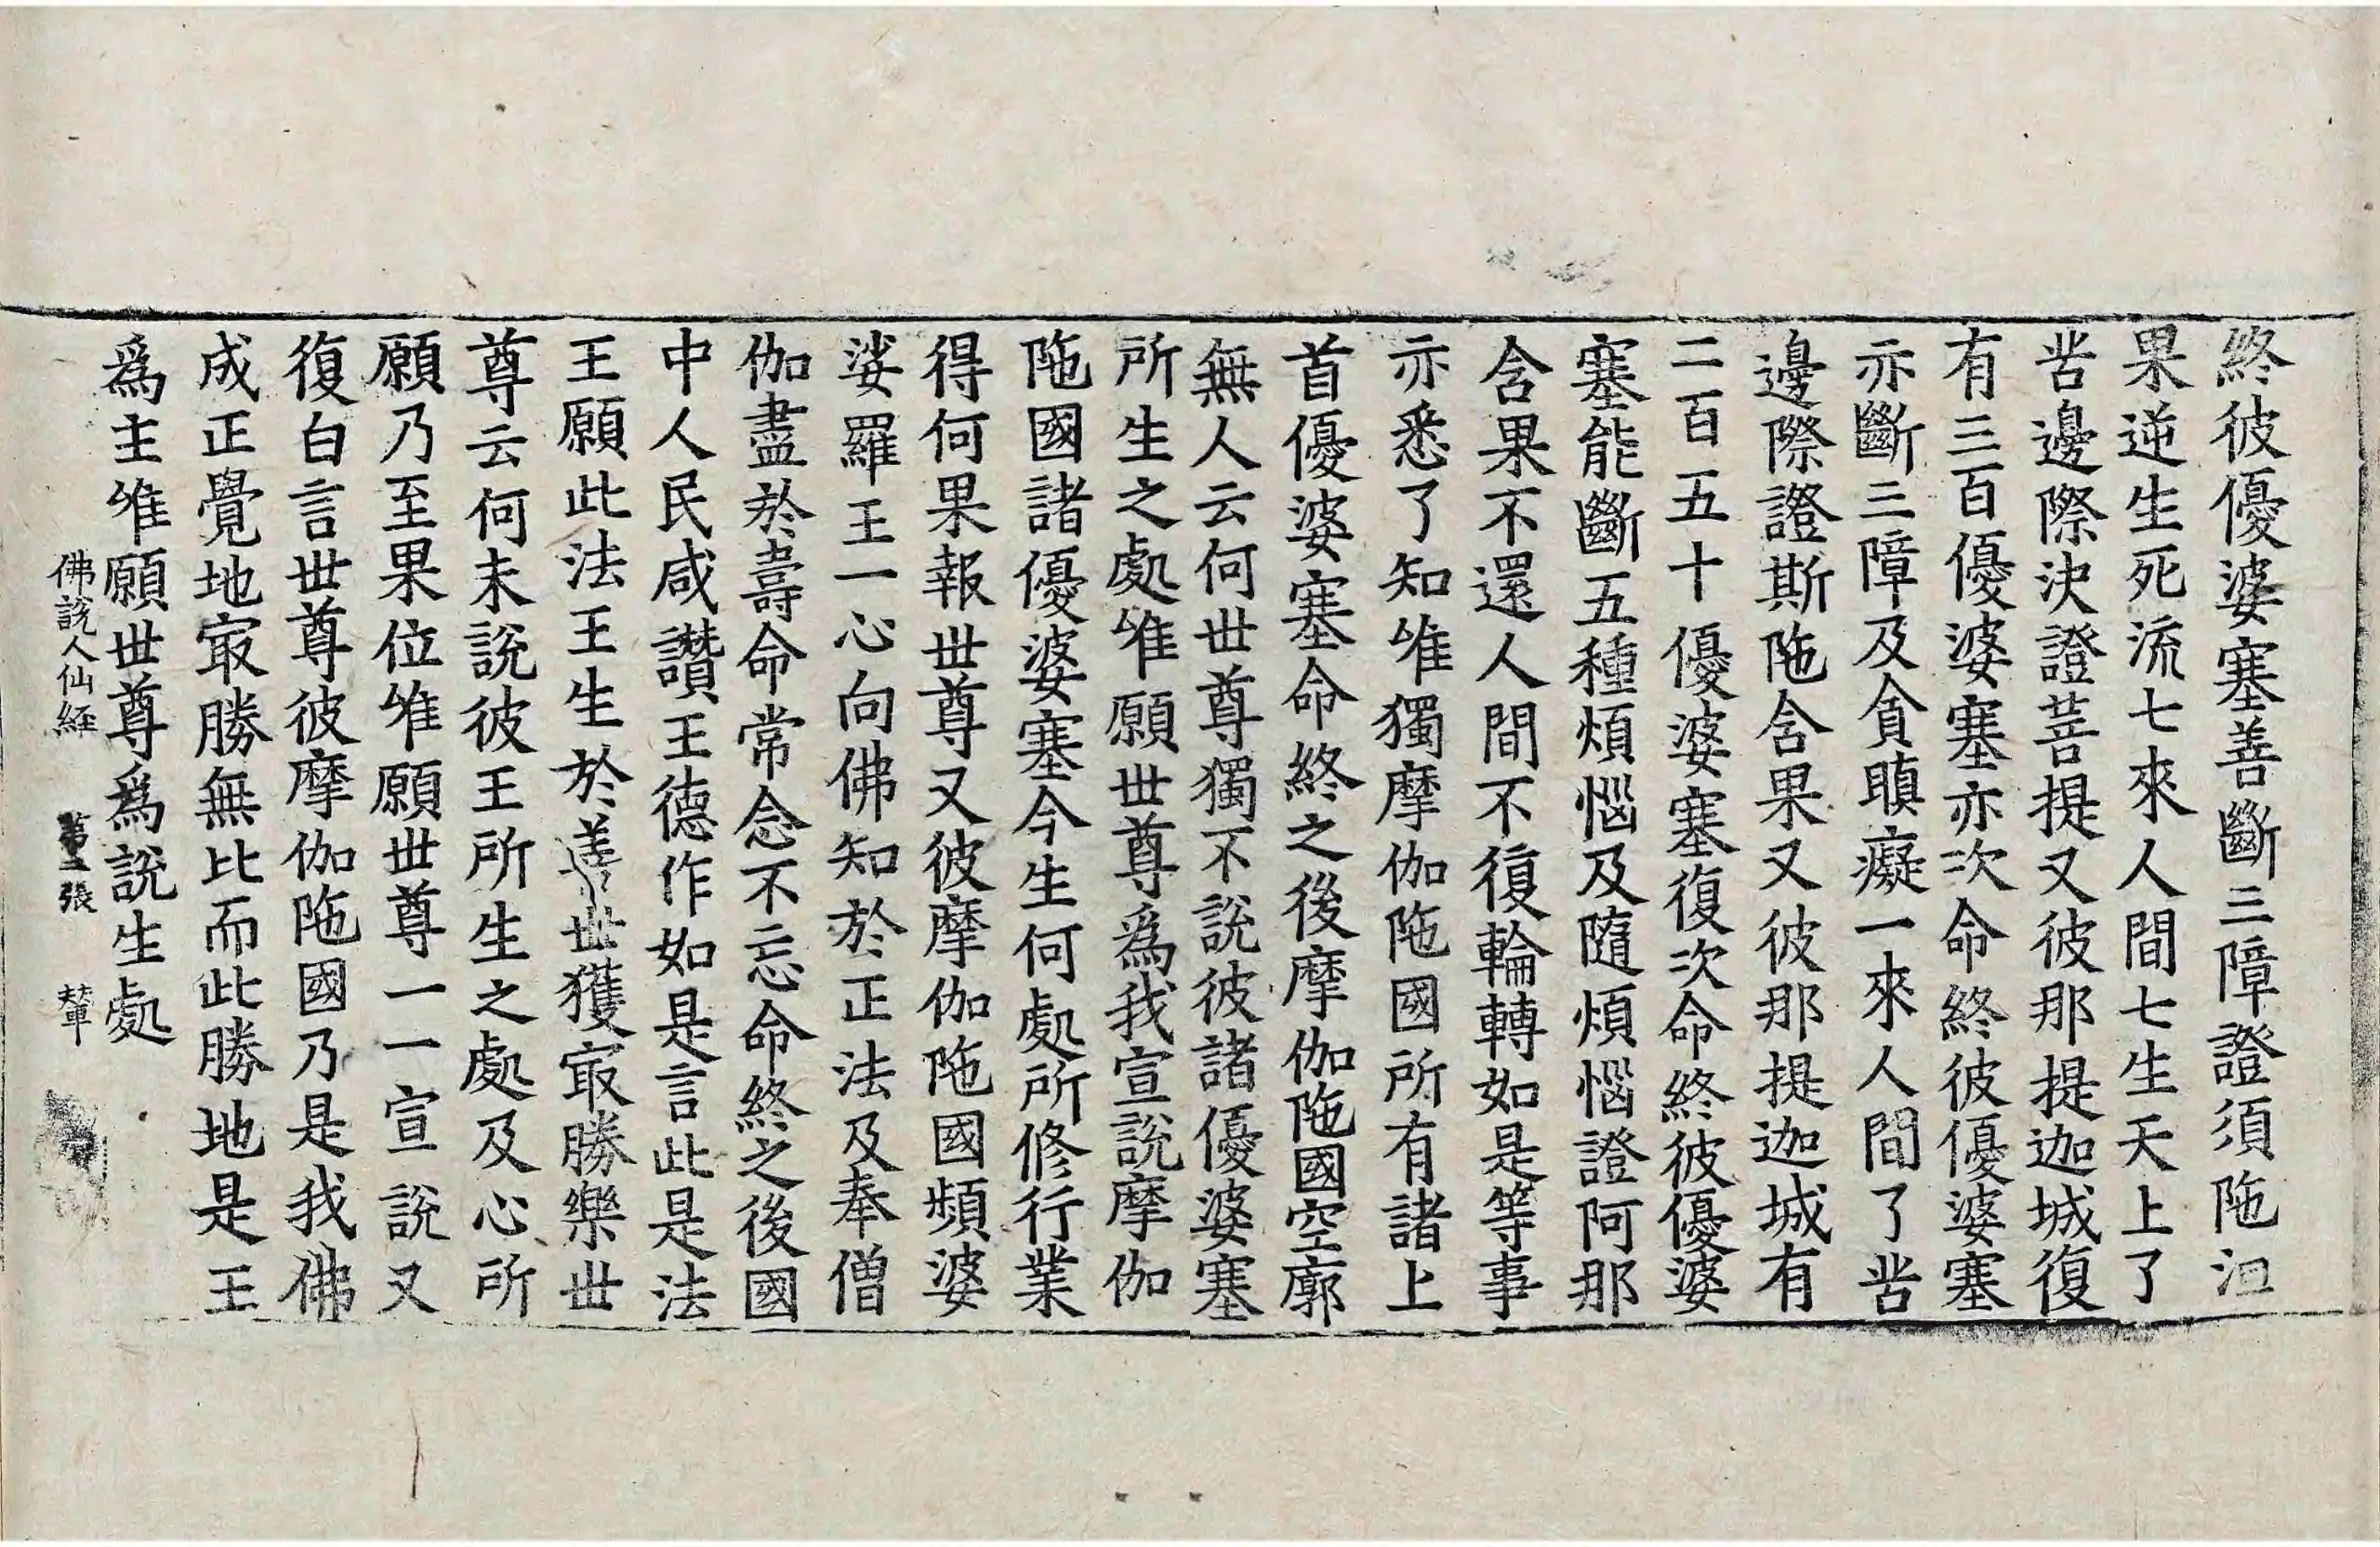 終彼優婆塞善斷三障證須陁洹
果逆生死流七來人間七生天上了
苦邊際決證菩提又彼那提迦城復
有三百優婆塞亦次命終彼優婆塞
亦斷三障及貪瞋癡一來人間了苦
邊際證斯陁含果又彼那提迦城有
二百五十優婆塞復次命終彼優婆
塞能斷五種煩惱及隨煩惱證阿那
含果不還人間不復輪轉如是等事
亦悉了知唯獨摩伽陁國所有諸上
首優婆塞命終之後摩伽陁國空廓
無人云何世尊獨不說彼諸優婆塞
所生之處唯願世尊爲我宣說摩伽
陁國諸優婆塞今生何處所修行業
得何果報世尊又彼摩伽陁國頻婆
娑羅王一心向佛知於正法及奉僧
伽盡於壽命常念不忘命終之後國
中人民咸讚王德作如是言此是法
王願此法王生於善世獲冣勝樂世
尊云何未說彼王所生之處及心所
願乃至果位唯願世尊一一宣說又
復白言世尊彼摩伽陁國乃是我佛
成正覺地冣勝無比而此勝地是王
爲主唯願世尊爲說生處
佛說人仙經 第二張 輦